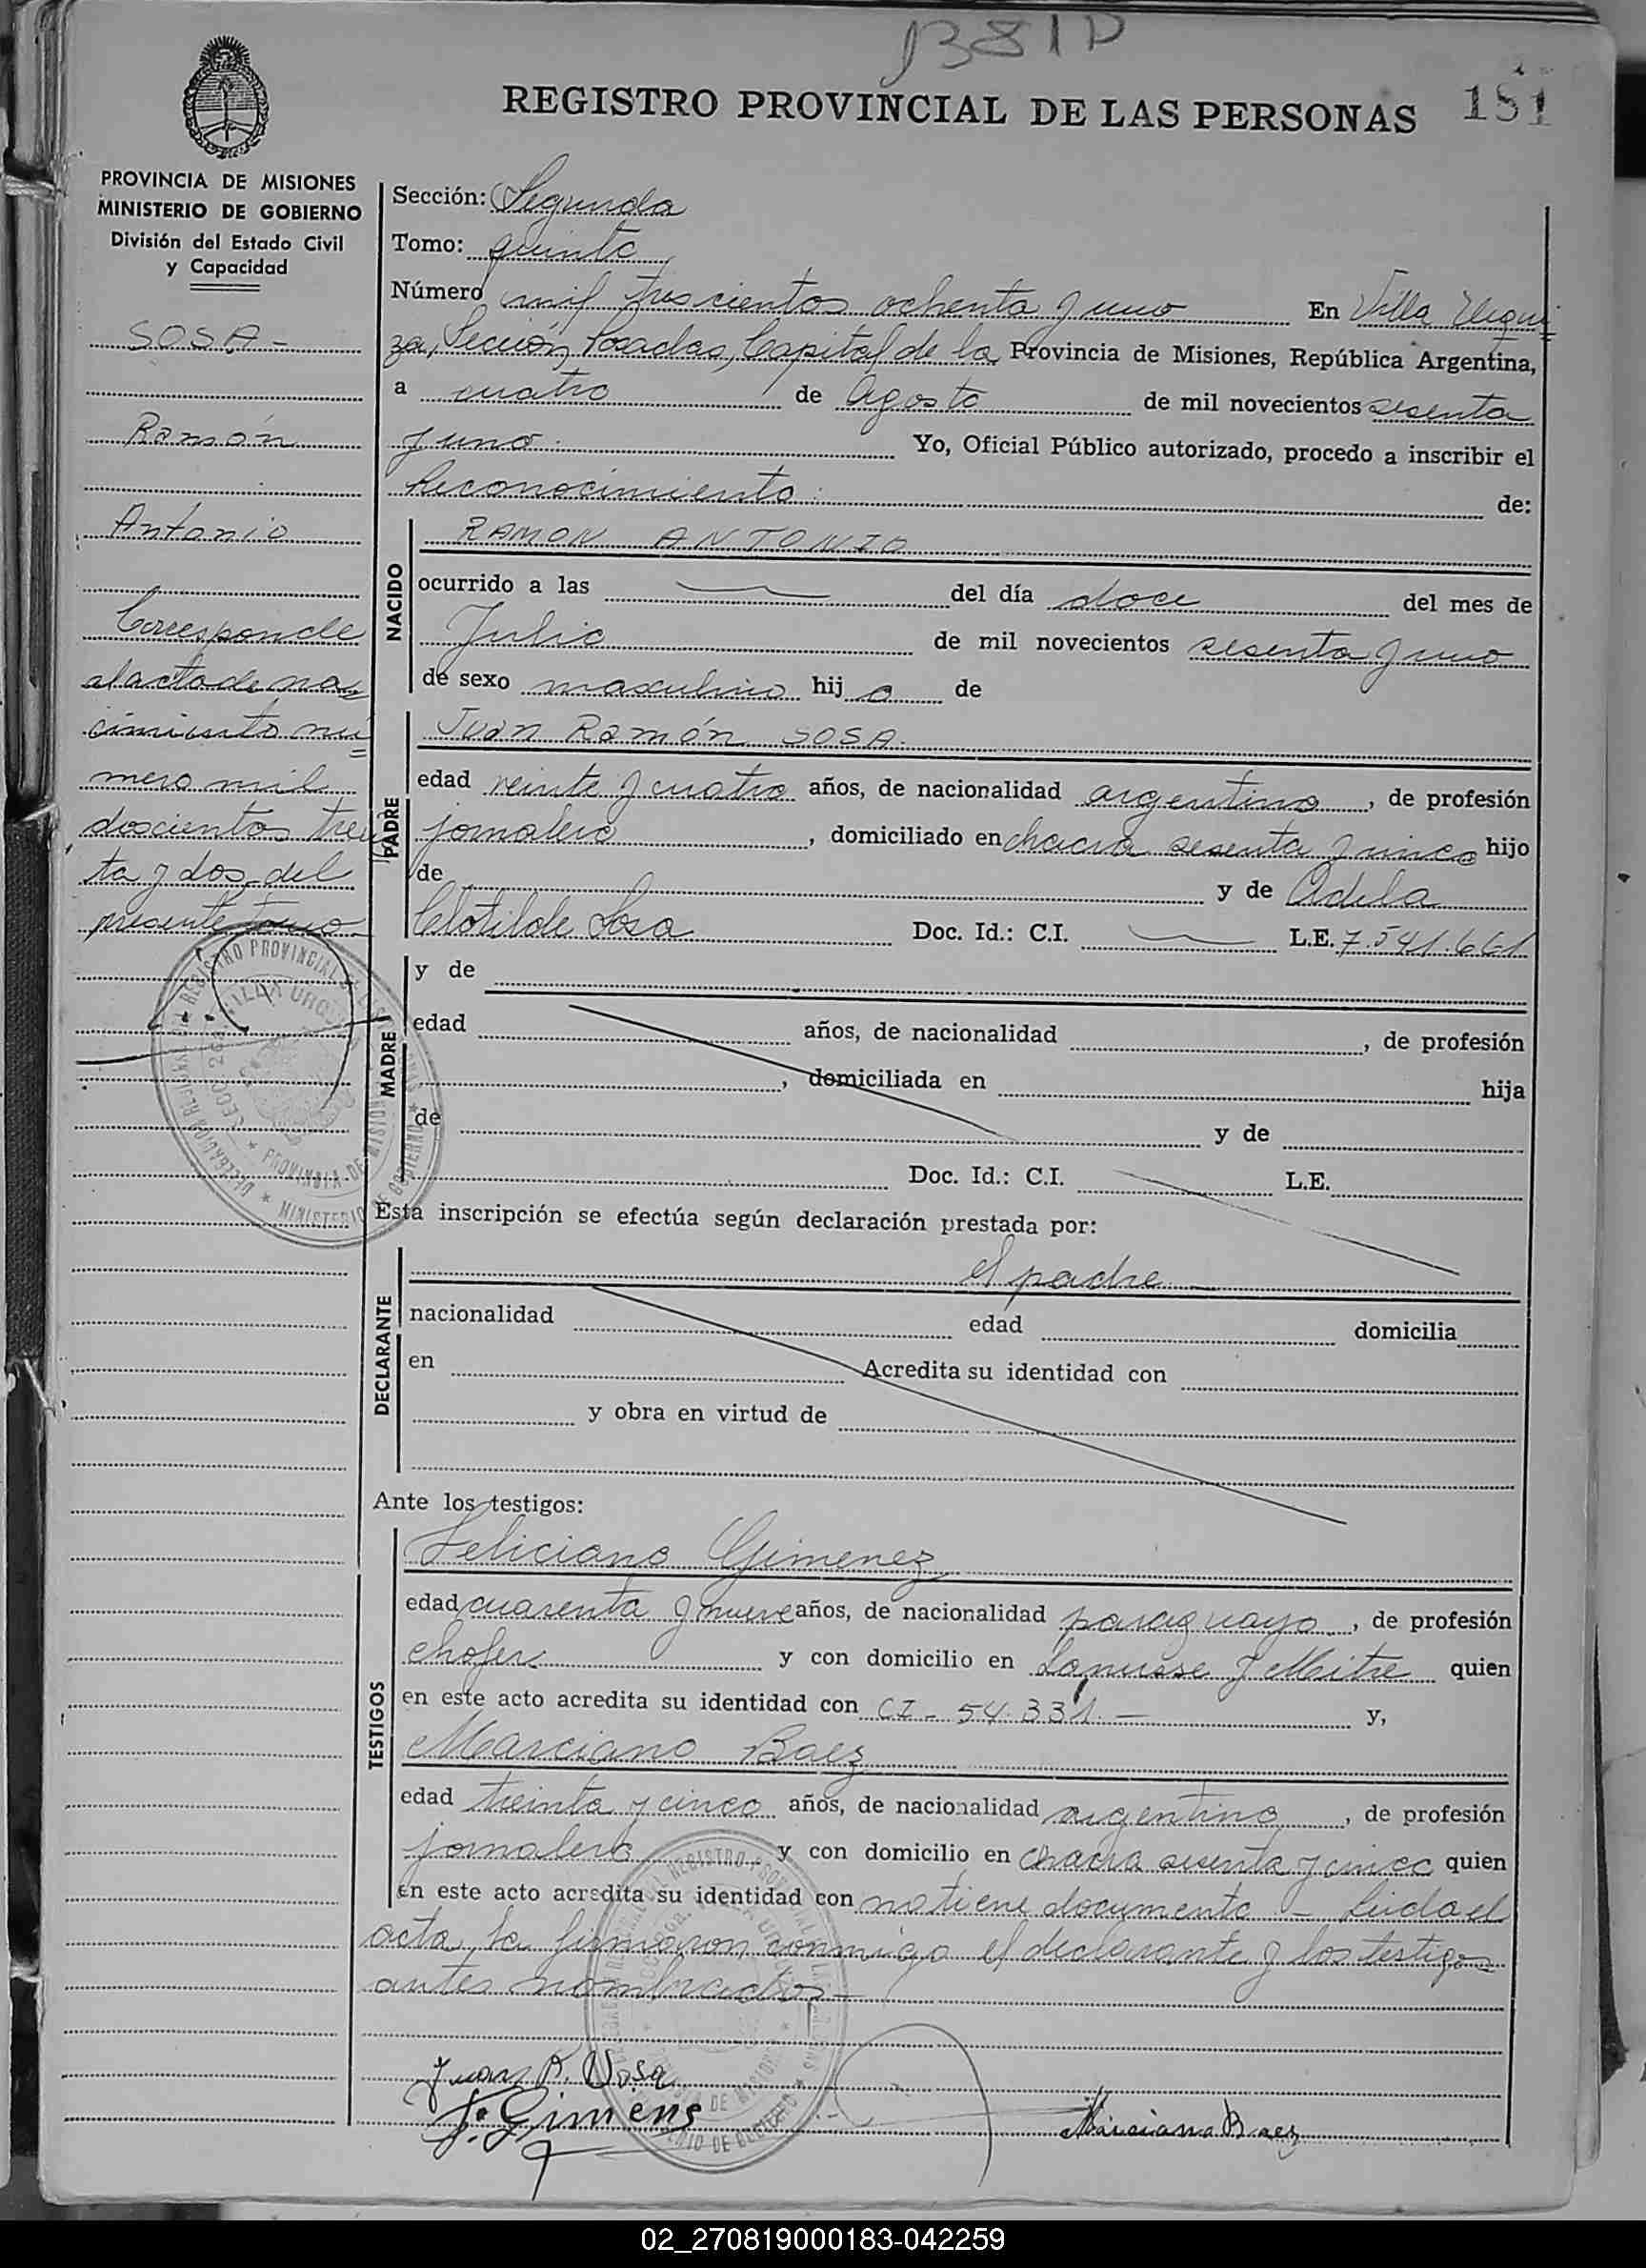 1381 D
REGISTRO PROVINCIAL DE LAS PERSONAS
181
PROVINCIA DE MISIONES
MINISTERIO DE GOBIERNO
División del Estado Civil
y Capacidad
SOSA -
Ramón
Antonio
Corresponde
al acta de na=
cimiento nú=
mero mil
doscientos trein
ta y dos, del
presente tomo.
Sección: Segunda
Tomo: quinto
Número mil trescientos ochenta y uno En Villa Urqui=
za, Sección Posadas, Capital de la Provincia de Misiones, República Argentina,
a cuatro de Agosto de mil novecientos sesenta
y uno. Yo, Oficial Público autorizado, procedo a inscribir el
Reconocimiento de:
NACIDO
RAMON ANTONIO
ocurrido a las del día doce del mes de
Julio de mil novecientos sesenta y uno
de sexo masculino hijo de
PADRE
Juan Ramón SOSA.
edad veinte y cuatro años, de nacionalidad argentino, de profesión
jornalero, domiciliado en chacra sesenta y cinco hijo
de y de Adela
Clotilde Sosa Doc. Id.: C.I. L.E. 7.541.661
MADRE
y de
edad años, de nacionalidad , de profesión
, domiciliada en hija
de y de
Doc. Id.: C.I. L.E.
Esta inscripción se efectúa según declaración prestada por:
DECLARANTE
el padre
nacionalidad edad domicilia
en Acredita su identidad con
y obra en virtud de
Ante los testigos:
TESTIGOS
Feliciano Gimenez
edad cuarenta y nueve años, de nacionalidad paraguayo, de profesión
chofer y con domicilio en Lanusse y Mitre quien
en este acto acredita su identidad con CI - 54.331.- y,
Marciano Baez
edad treinta y cinco años, de nacionalidad argentino, de profesión
jornalero y con domicilio en chacra sesenta y cinco quien
en este acto acredita su identidad con no tiene documento - Leida el
acta, la firmaron conmigo el declarante y los testigos
antes nombrados -
Juan R. Sosa
F. Gimens
Marciano Baez
02_270819000183-042259